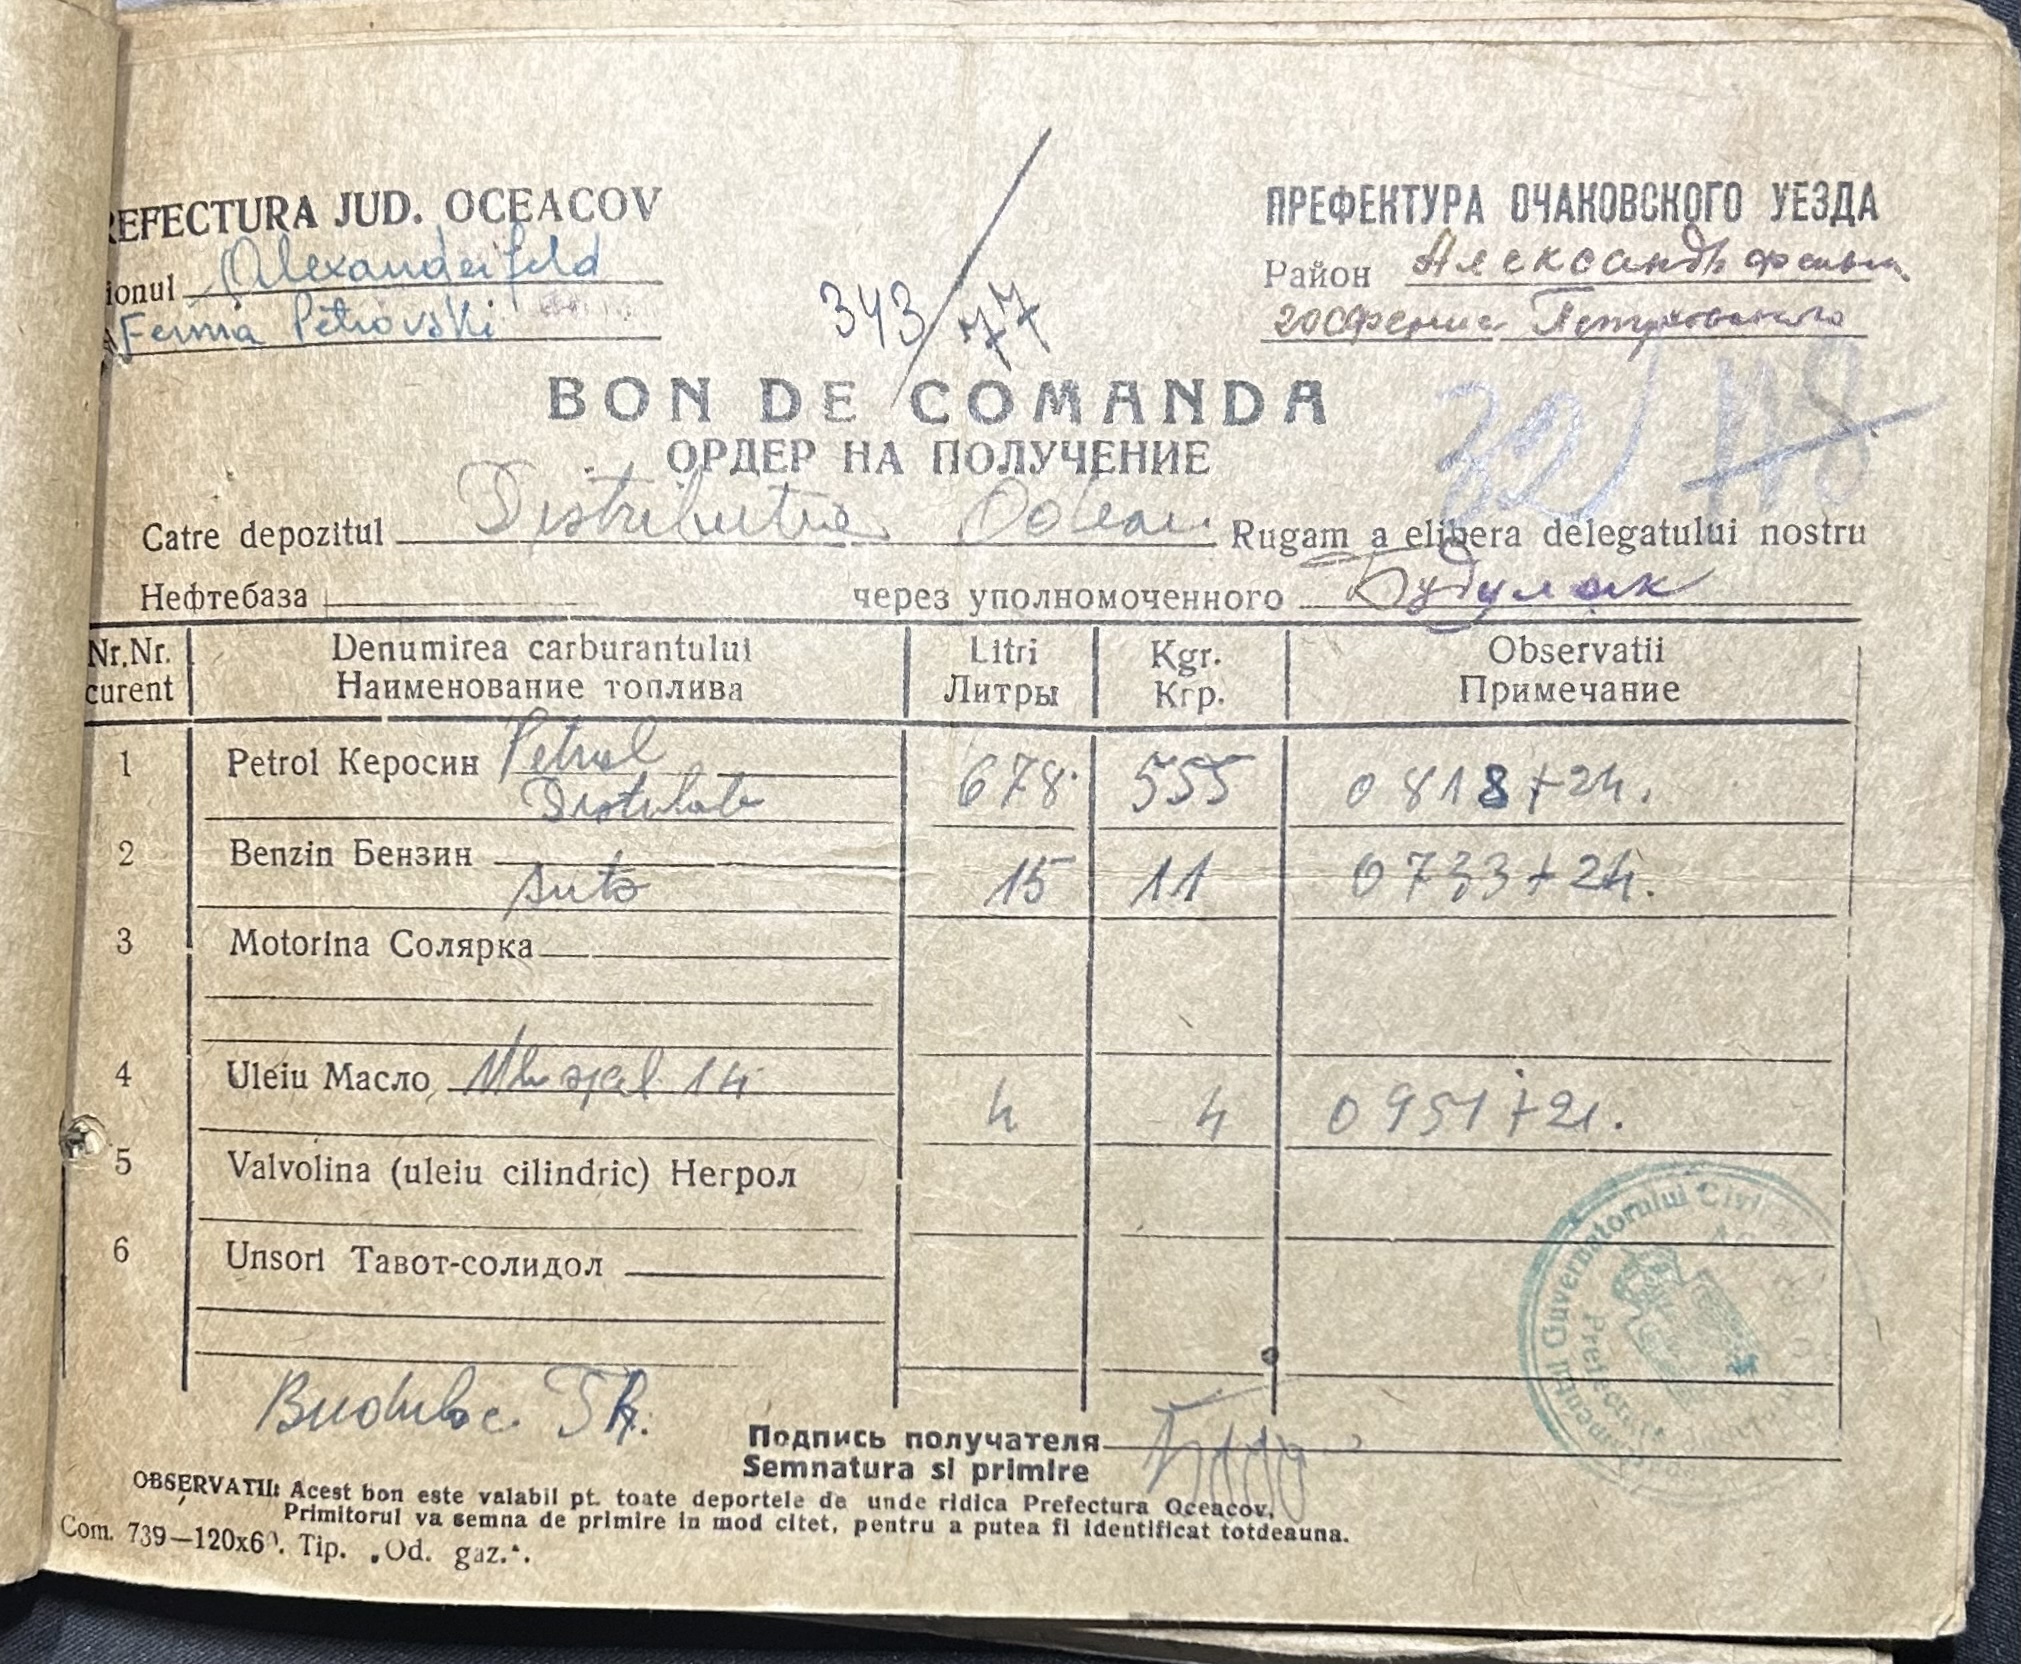 REFECTURA JUD. OCEACOV
ionul Alexanderfeld
Ferma Petrovski
343/77
ПРЕФЕКТУРА ОЧАКОВСКОГО УЕЗДА
Район Александрфельд
госферма Петровского
BON DE COMANDA
ОРДЕР НА ПОЛУЧЕНИЕ
32/ 118
Catre depozitul Distributia Rugam a elibera delegatului nostru
Нефтебаза через уполномоченного Будулак
Nr.Nr. curent Denumirea carburantului Litri Kgr. Observatii
Наименование топлива Литры Кгр. Примечание
1 Petrol Керосин Petrol Distilate 678 555 0818+24.
2 Benzin Бензин auto 15 11 0733+24.
3 Motorina Солярка
4 Uleiu Масло 14 4 4 0951+21.
5 Valvolina (uleiu cilindric) Негрол
6 Unsori Тавот-солидол
Budulac
Подпись получателя
Semnatura si primire
Guvernatorului Civil
OBSERVATII: Acest bon este valabil pt. toate deportele de unde ridica Prefectura Oceacov,
Primitorul va semna de primire in mod citet, pentru a putea fi identificat totdeauna.
Com. 739—120x60. Tip. „Od. gaz.“.